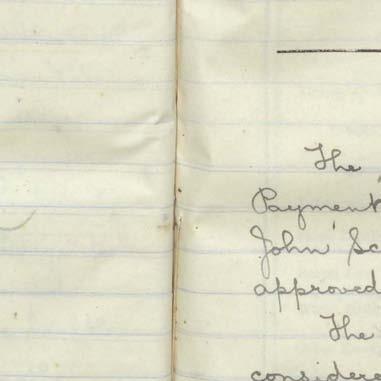 The
Payment
John Sc
approved
The
considere